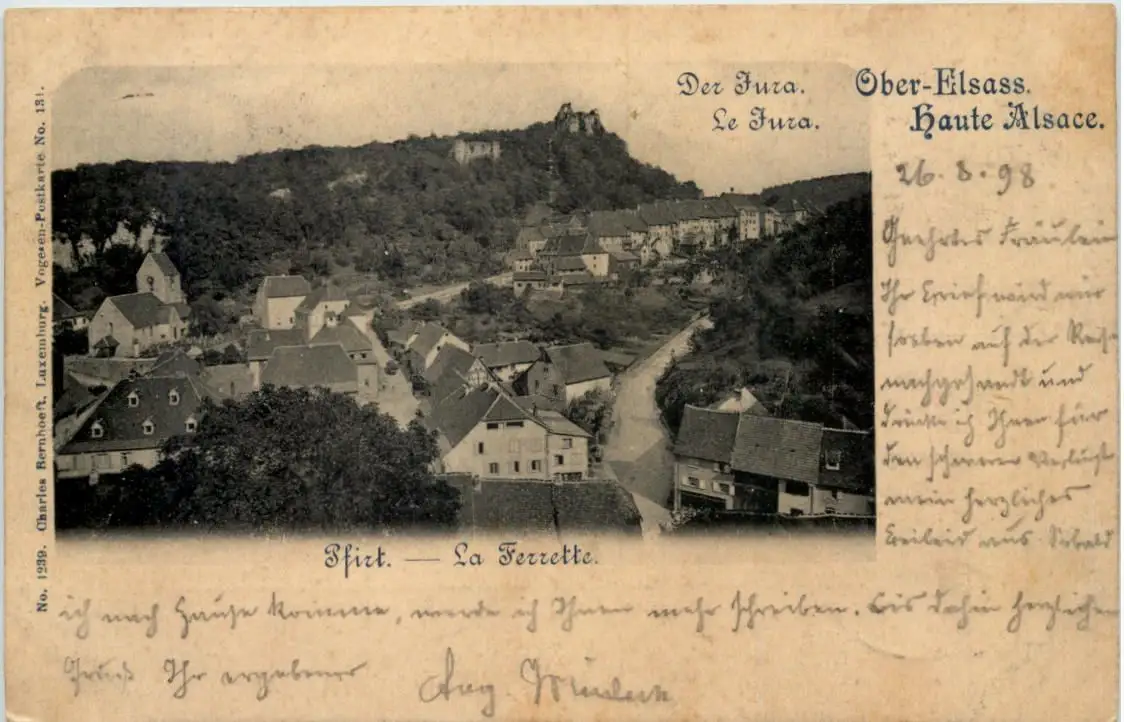 Der Jura.
Le Jura.
Ober-Elsass.
Haute Alsace.
26.8.98
Geehrtes Fräulein
Ihr Brief wird mir
soeben auf der Reise
nachgesandt und
drücke ich Ihnen für
den schweren Verlust
mein herzliches
Beileid aus. Sobald
ich nach Hause komme, werde ich Ihnen mehr schreiben. Bis dahin herzlichen
Gruß Ihr ergebener Aug
Pfirt. — La Ferrette.
No. 1239. Charles Bernhoeft, Luxemburg. Vogesen-Postkarte No. 131.